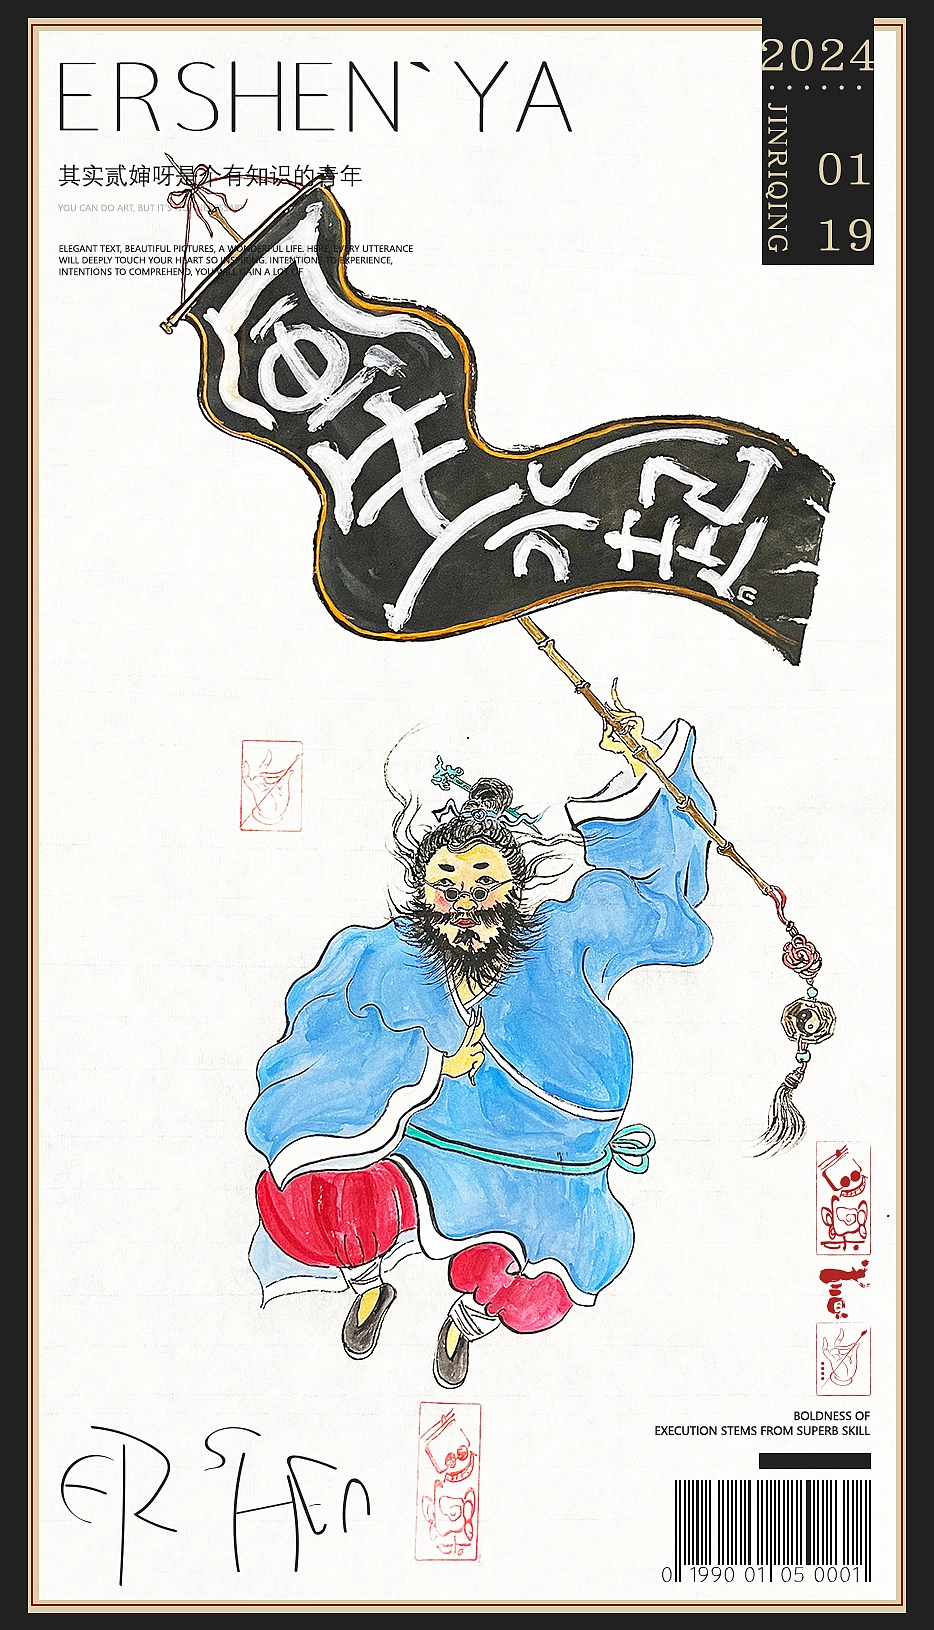 ERSHEN`YA
2024
JINRIQING
01
19
其实贰婶呀是个有知识的青年
YOU CAN DO ART, BUT IT'S
ELEGANT TEXT, BEAUTIFUL PICTURES, A WONDERFUL LIFE. HERE, EVERY UTTERANCE
WILL DEEPLY TOUCH YOUR HEART SO INSPIRING. INTENTIONS TO EXPERIENCE,
INTENTIONS TO COMPREHEND, YOU WILL GAIN A LOT OF
BOLDNESS OF
EXECUTION STEMS FROM SUPERB SKILL
ERSHEn
0 1990 01 05 0001